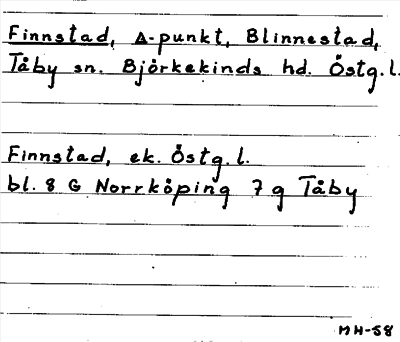 Finnstad, Δ-punkt, Blinnestad,
Tåby sn. Björkekinds hd. Östg.l.
Finnstad, ek. Östg.l.
bl. 8 G Norrköping 7 g Tåby
MH-58